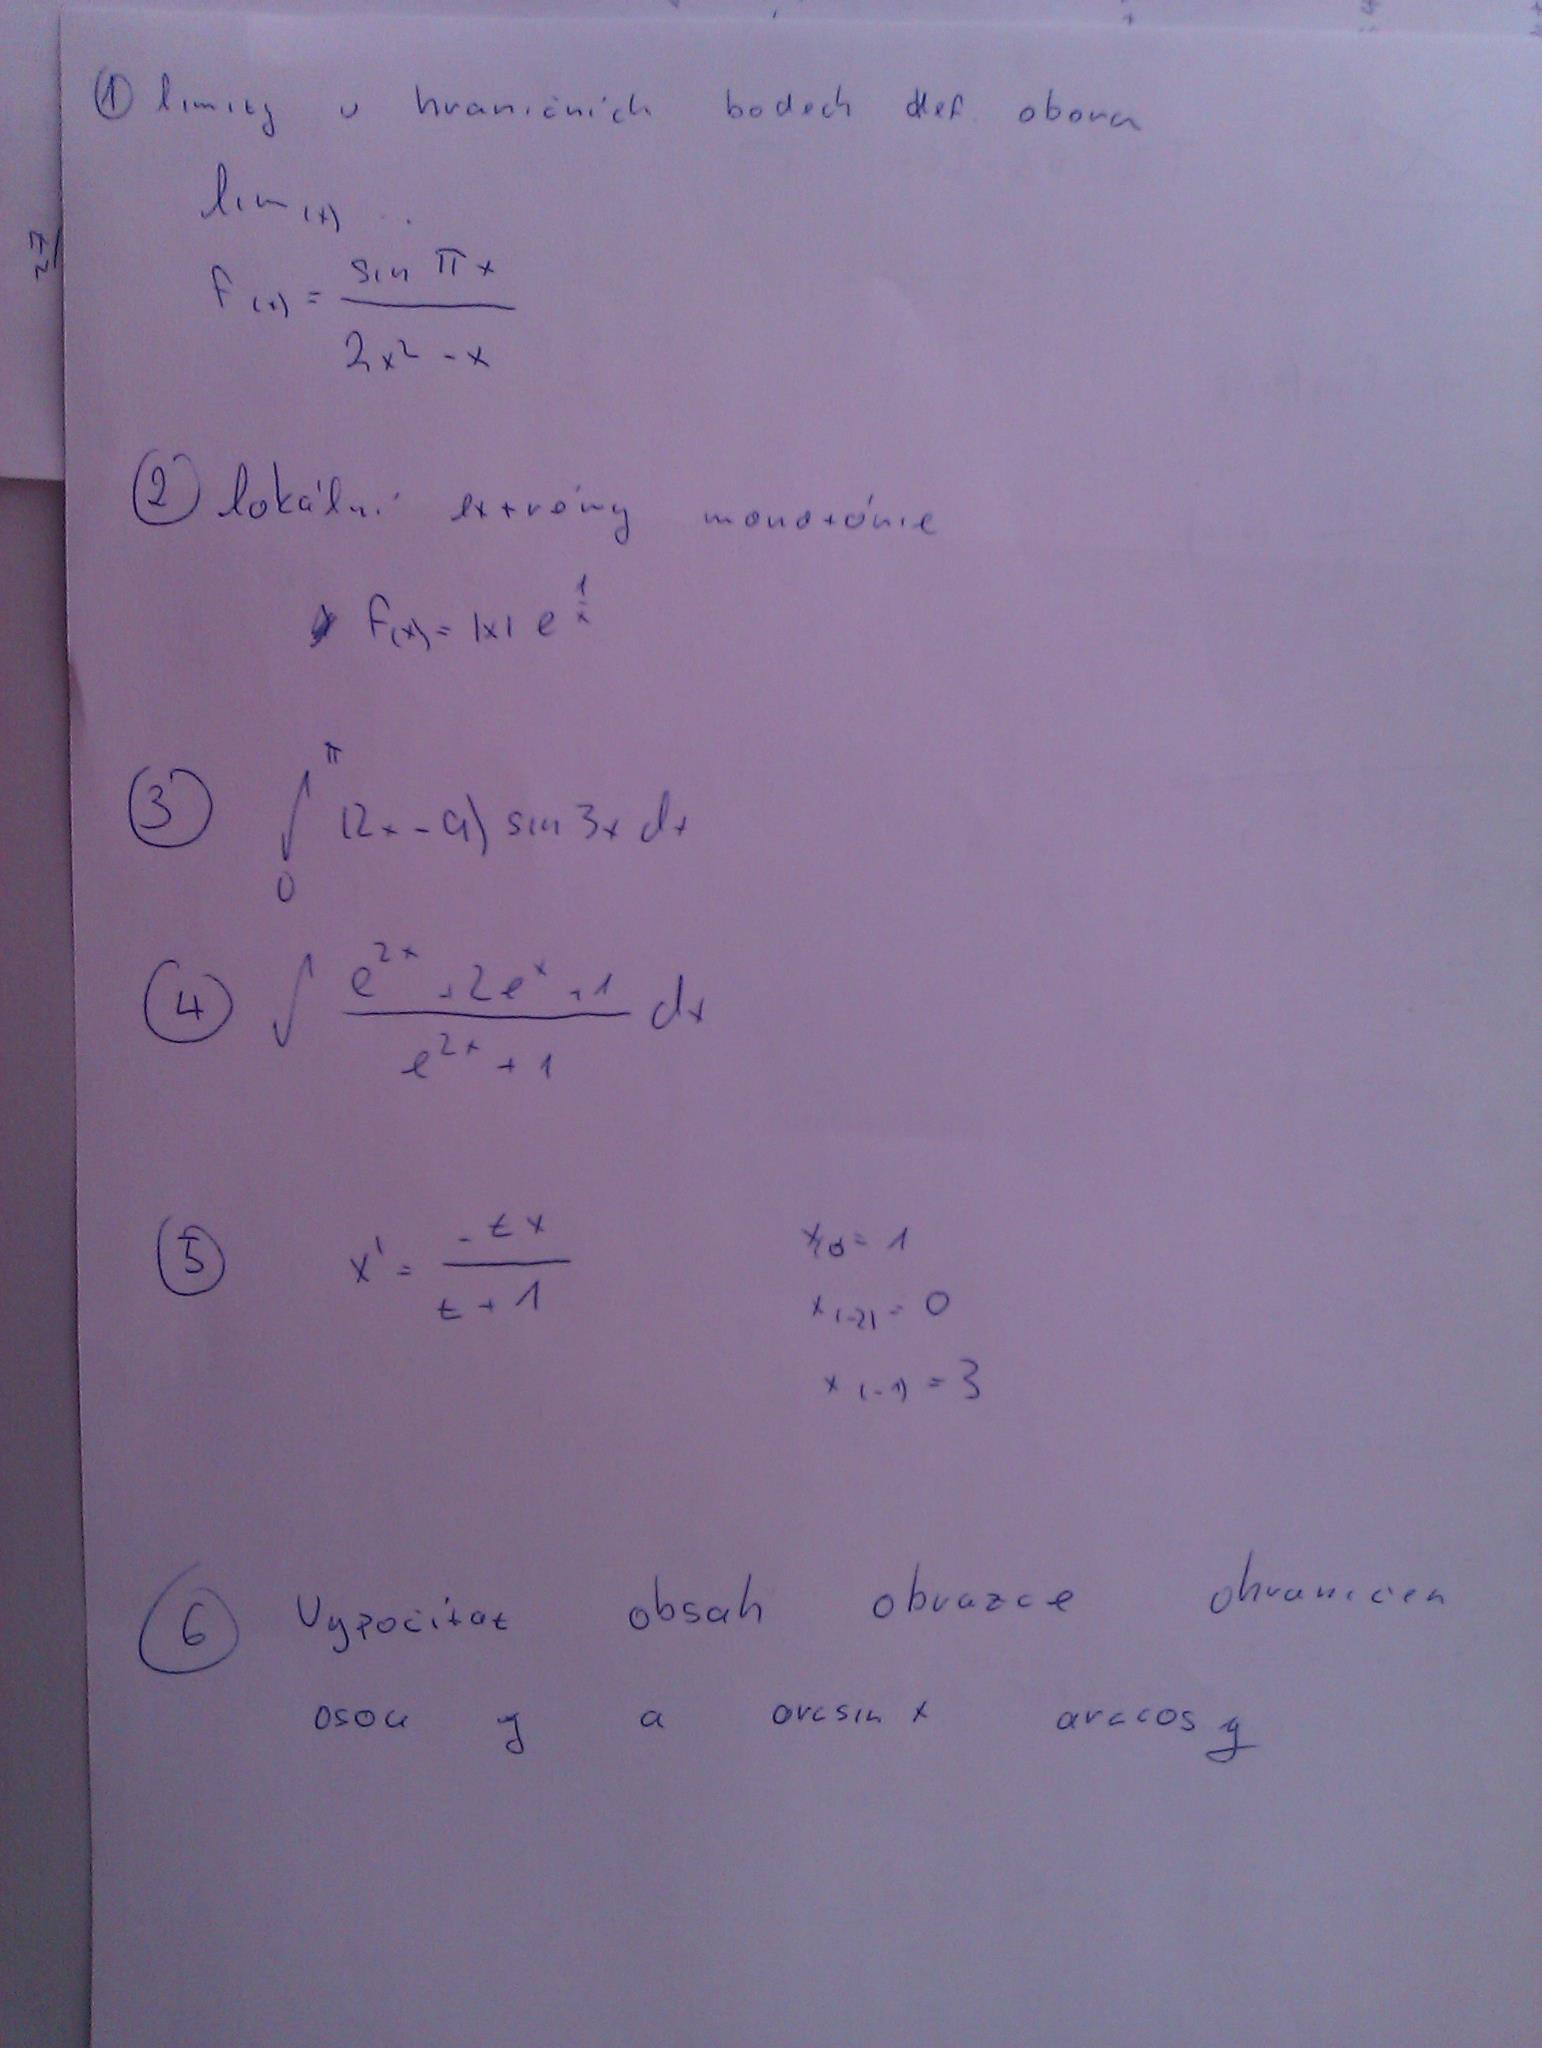 ① limity v hraničních bodech def. oboru
lim (x) ..
f(x) = sin πx / (2x² - x)
② lokální extrémy monotónie
f(x) = |x| e^(1/x)
③ ∫₀^π (2x - 9) sin 3x dx
④ ∫ (e^(2x) + 2e^x + 1) / (e^(2x) + 1) dx
⑤ x' = -tx / (t + 1)
x(0) = 1
x(-2) = 0
x(-1) = 3
⑥ Vypočítat obsah obrazce ohraničen
osou y a arcsin x arccos y